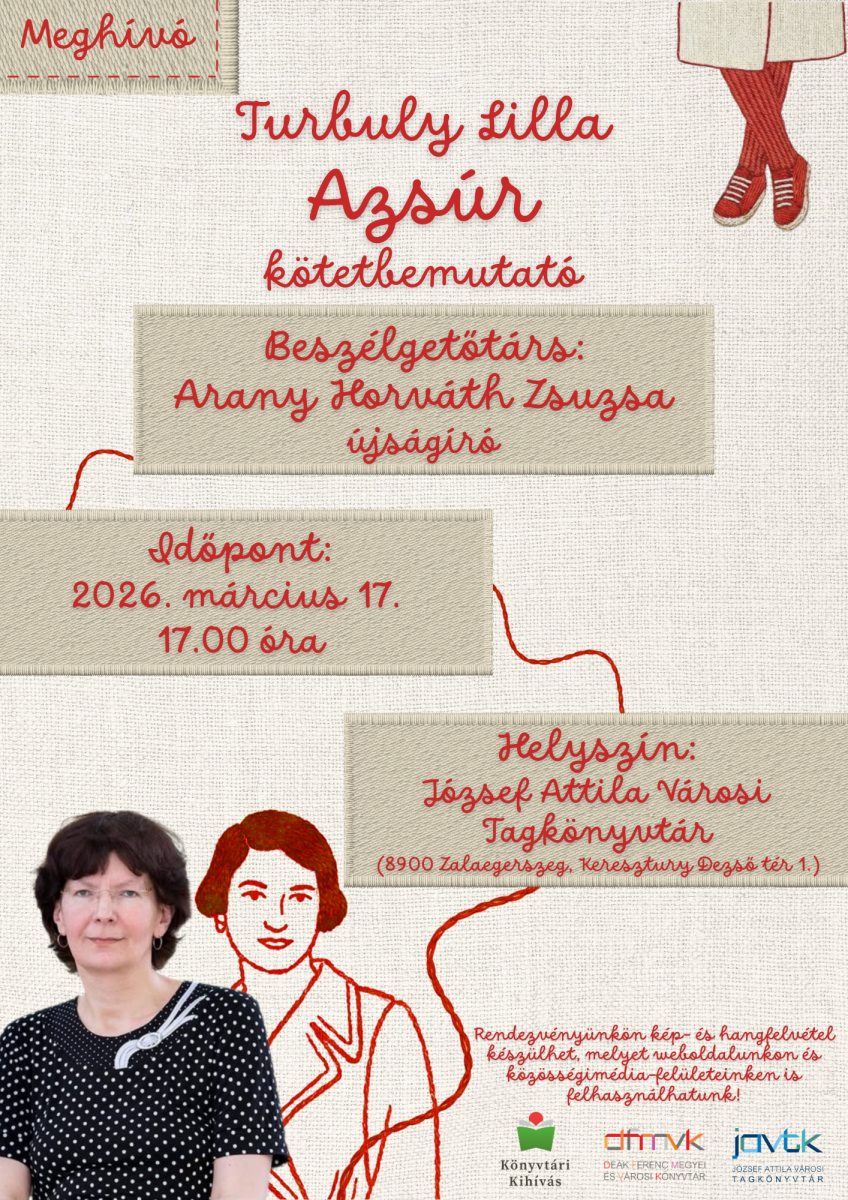 Meghívó
Turbuly Lilla
Azsúr
kötetbemutató
Beszélgetőtárs:
Arany Horváth Zsuzsa
újságíró
Időpont:
2026. március 17.
17.00 óra
Helyszín:
József Attila Városi
Tagkönyvtár
(8900 Zalaegerszeg, Keresztury Dezső tér 1.)
Rendezvényünkön kép- és hangfelvétel
készülhet, melyet weboldalunkon és
közösségimédia-felületeinken is
felhasználhatunk!
Könyvtári
Kihívás
dfmvk
DEÁK FERENC MEGYEI
ÉS VÁROSI KÖNYVTÁR
javtk
JÓZSEF ATTILA VÁROSI
TAGKÖNYVTÁR